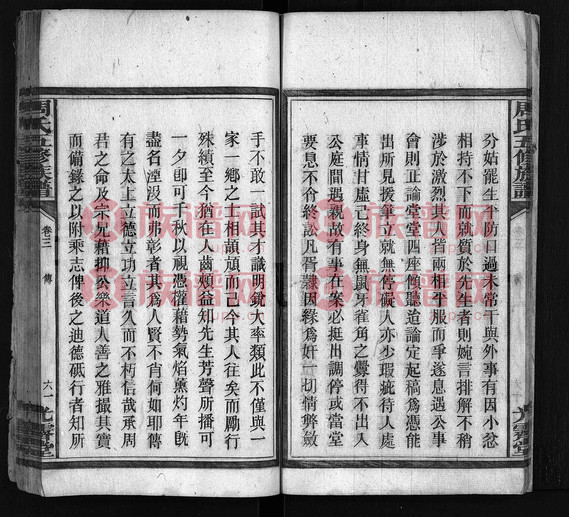 周氏五修族譜
分姑罷生平防口過未常干與外事有因小忿
相持不下而就質於先生者則婉言排解不稍
涉於激烈其人皆兩相平服而爭遂息遇公事
會則正論堂堂四座傾聽造論定起稿為憑能
出所見援筆立就無停礙人亦少瑕疵待人處
事情甘虛己終身無鼠牙雀角之釁得不出入
公庭間遇親故有事在案必挺出調停或當堂
要見不合終訟凡胥隸因緣為奸一切情弊斂
手不敢一試其才識明銳大率類此不僅與一
家一鄉之士相頡頏而已今其人往矣而勵行
殊績至今猶在人齒頰益知先生芳聲所播可
一夕即可千秋以視憑權藉勢氣焰薰灼年既
盡名湮沒而弗彰者其為人賢不肖何如耶傳
有之太上立德立功立言久而不朽信哉承周
君之命及宗兄藉抑公樂道人善之雅撮其實
而備錄之以附乘志俾後之迪德砥行者知所
周氏五修族譜
卷三 傳
六一
光霽堂
族譜网